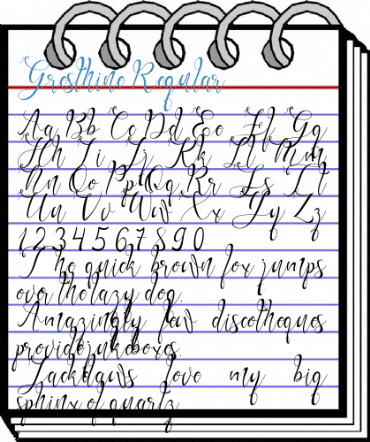 Grosthino Regular
Aa Bb Cc Dd Ee Ff Gg
Hh Ii Jj Kk Ll Mm
Nn Oo Pp Qq Rr Ss Tt
Uu Vv Ww Xx Yy Zz
1 2 3 4 5 6 7 8 9 0
The quick brown fox jumps
over the lazy dog.
Amazingly few discotheques
provide jukeboxes.
Jackdaws love my big
sphinx of quartz